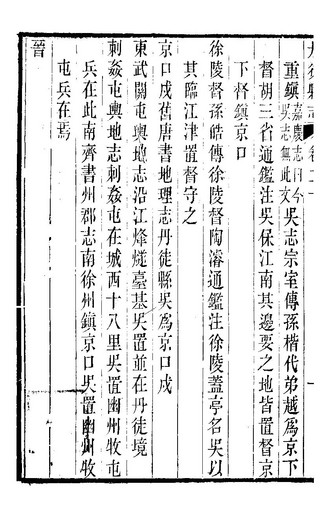 丹徒縣志 卷二十
重鎮嘉慶志曰今吳志無此文吳志宗室傳孫楷代弟越爲京下
督胡三省通鑑注吳保江南其邊要之地皆置督京
下督鎮京口
徐陵督孫皓傳徐陵督陶濬通鑑注徐陵蓋亭名吳以
其臨江津置督守之
京口戍舊唐書地理志丹徒縣吳爲京口戍
東武關屯輿地志沿江烽燧臺基吳置並在丹徒境
刺姦屯輿地志刺姦屯在城西十八里吳置幽州牧屯
兵在此南齊書州郡志南徐州鎮京口吳置幽州牧
屯兵在焉
晉